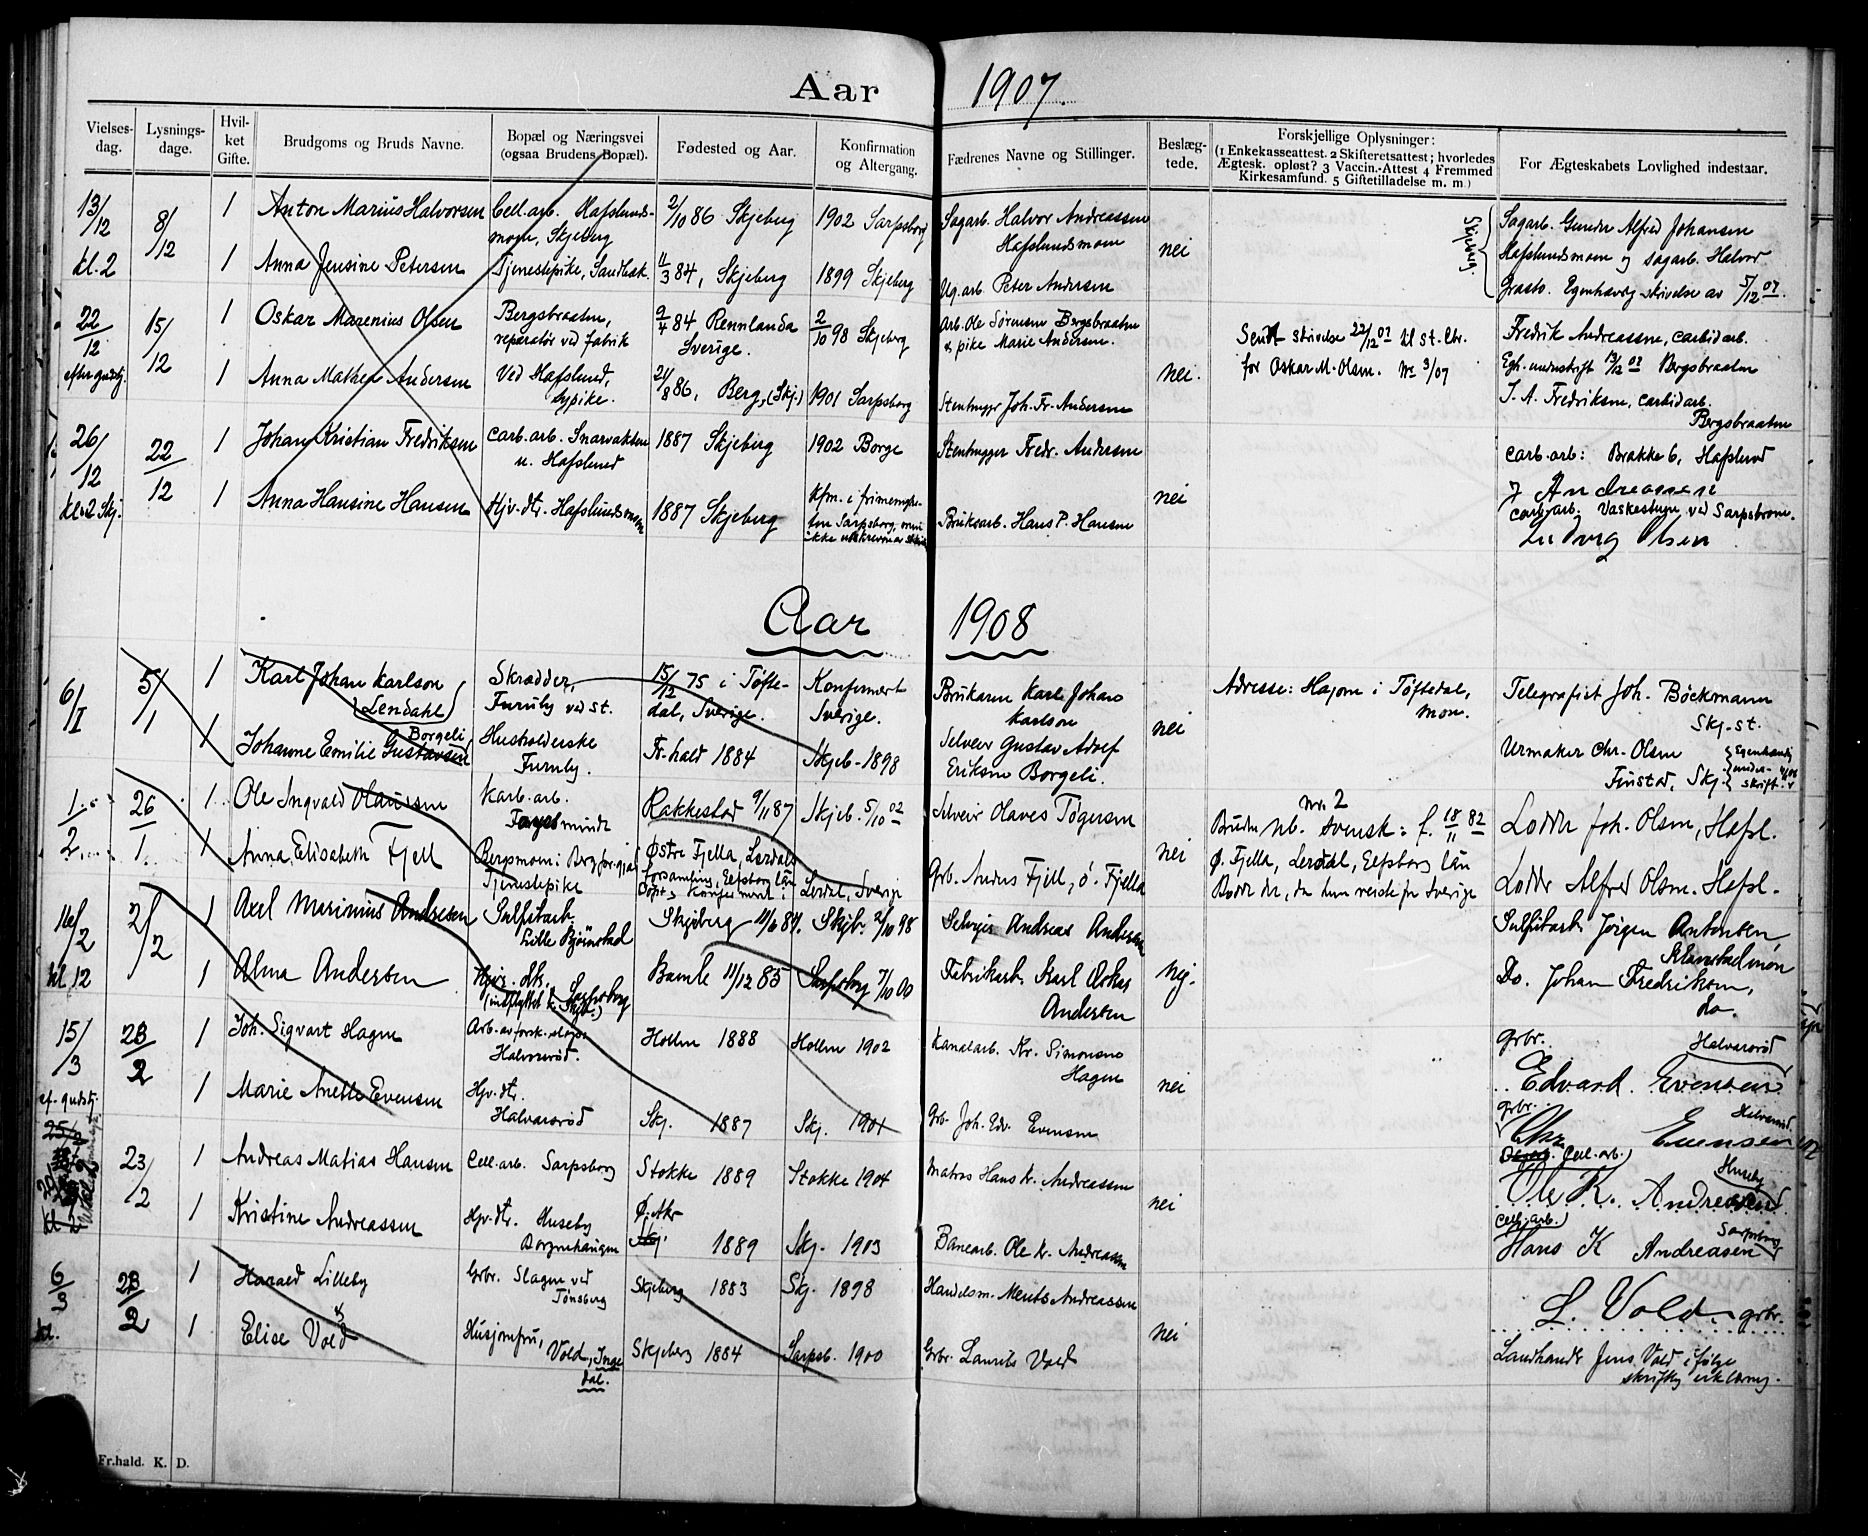 Aar 1907.
Vielses-dag. Lysnings-dage. Hvil-ket Gifte. Brudgoms og Bruds Navne. Bopæl og Næringsvei (ogsaa Brudens Bopæl). Fødested og Aar. Konfirmation og Altergang. Fædrenes Navne og Stillinger. Beslæg-tede. Forskjellige Oplysninger: (1 Enkekasseattest. 2 Skifteretsattest; hvorledes Ægtesk. opløst? 3 Vaccin.-Attest 4 Fremmed Kirkesamfund. 5 Giftetilladelse m. m.) For Ægteskabets Lovlighed indestaar.
13/12 8/12 1 Anton Marius Halvorsen Cell.arb. Hafslunds- 2/10 86 Skjeberg 1902 Sarpsborg Sagarb. Halvor Andreassen Skjeberg. Sagarb. Gunder Alfred Johansen
moen, Skjeberg Hafslundsmoen nei Hafslundsmoen og sagarb. Halvor
kl. 2 1 Anna Jensine Petersen Tjenestepike, Sandbæk. 11/3 84, Skjeberg 1899 Skjeberg Ug.arb. Peter Andersen Egenhændig skrivelse av 5/12 07.
22/12 15/12 1 Oskar Marenius Olsen Bergsbraaten, 9/4 84 Rennlanda 2/10 98 Skjeberg Arb. Ole Sørensen Bergsbraaten Sendt skrivelse 22/12 07 til st. Chr. Fredrik Andreassen, carbidarb.
reparatør ved fabrik Sverige. & pike Marie Andersen. for Oskar M. Olsen. No 3/07 Egh. underskrift 13/12 07 Bergsbraaten
efter gudstj. 1 Anna Mathea Andersen Ved Hafslund, 21/8 86, Berg, (Skj.) 1901 Sarpsborg Stenhugger Joh. Fr. Andersen nei. J. A. Fredriksen, carbidarb.
sypike. Bergsbraaten
26/12 22/12 1 Johan Kristian Fredriksen Carb.arb. Snarvakten 1887 Skjeberg 1902 Borge Stenhugger Fredr. Andersen Carb.arb: Brakke 6, Hafslund
u. Hafslund J Andreassen
kl. 2 Skj. 1 Anna Hansine Hansen Hjv.dtr. Hafslundsmoen 1887 Skjeberg Kfm. i frimenighe- Bruksarb. Hans P. Hansen nei carb.arb. Vaskestuen ved Sarpsbroen.
ten Sarpsborg, men Ludvig Olsen
Aar 1908
6/I 5/1 1 Karl Johan Karlson Skrædder, 15/12 75 i Töfte- Konfirmert Brukaren Karl Johan Adresse: Hajom i Töftedal, Telegrafist Joh. Böckmann
(Lendahl) Furuby ved st. dal, Sverige. Sverige. Karlson nei Skj. st.
1 Johanne Emilie Gustavsen Borgeli Husholderske Fr.hald 1884 Skjeb. 1898 Selveier Gustav Adolf Urmaker Chr. Olsen Egenhændig
Furuby. Eriksen Borgeli. Finstad, Skj. under-skrift
1/2 26/1 1 Ole Ingvald Olaussen Karb.arb. Rakkestad 9/11 87 Skjeb. 5/10 02 Selveier Olaves Tøgersen No. 2
Bruden nb. svensk: f. 18/11 82 Lodder Joh. Olsen, Hafsl.
1 Anna Elisabeth Fjell Bergsmoen i Berg Østre Fjella, Lerdals Grb. Anders Fjell, ö. Fjella nei Ø. Fjella, Lerdal, Elfsborg län
Tjenestepike forsamling, Elfsborg län Lerdal, Sverige Lodder Alfred Olsen. Hafsl.
Döpt & Konfirmert i
16/2 2/2 1 Axel Marinius Andresen Sulfitarb. Skjeberg 11/6 84. Skjb. 2/10 98 Selveier Andreas Andersen Sulfitarb. Jørgen Antonsen
Lille Bjørnstad nei.
kl 12 1 Alma Andersen Hjv. dtr. Sarpsborg Bamle 11/12 85 Sarpsborg 7/10 00 Fabrikarb. Karl Oskar Do. Johan Fredriksen,
(indflyttet t. Skjb.) Andersen do.
15/3 23/2 1 Joh. Sigvart Hagen Hollen 1888 Hollen 1902 Kanalarb. Kr. Simonsen Grbr. Halvorsrød
Halvorsrød. Hagen nei Edvard Evensen
ef. gudstj. 1 Marie Anette Evensen Hjv. dtr. Grbr. Halvorsrød
Halvorsrød Skj. 1887 Skj. 1901 Grb. Joh. Edv. Evensen Chr Evensen
23/2 1 Andreas Matias Hansen Cell.arb. Sarpsborg Stokke 1889 Stokke 1904 Matros Hans K. Andreassen Cell.arb. Huseby
Ole K. Andreassen
1 Kristine Andreassen Hjv. dtr. Huseby Skj. 1889 Skj. 1903 Banearb. Ole K. Andreassen nei Cell.arb. Sarpsborg
Borgenhaugen Hans K Andreasen
6/3 23/2 1 Harald Lilleby Grbr. Slagen ved Skjeberg 1883 Skj. 1898 Handelsm. Ments Andreassen
Tønsberg L. Vold grbr.
kl. 1 Elise Vold Husjomfru, Skjeberg 1884 Sarpsb. 1900 Grbr. Laurits Vold nei Landhandl. Jens Vold ifølge
Vold, Inge-dal. skriftlig erklæring.
Fr.hald. K. D.